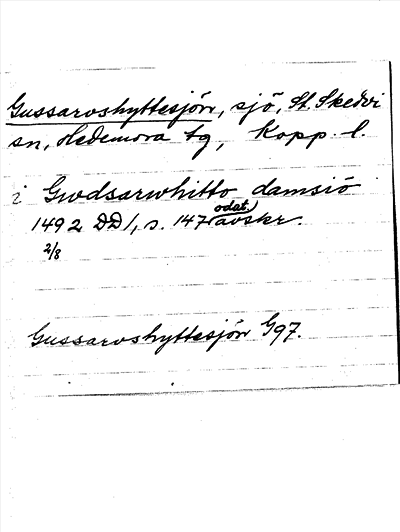 Gussarvshyttesjön, sjö, St. Skedvi
sn, Hedemora tg, Kopp. l.
i Gwdsarwhitto damsiö
odat.
1492 DD 1, s. 147 avskr.
2/8
Gussarvshyttesjön G97.